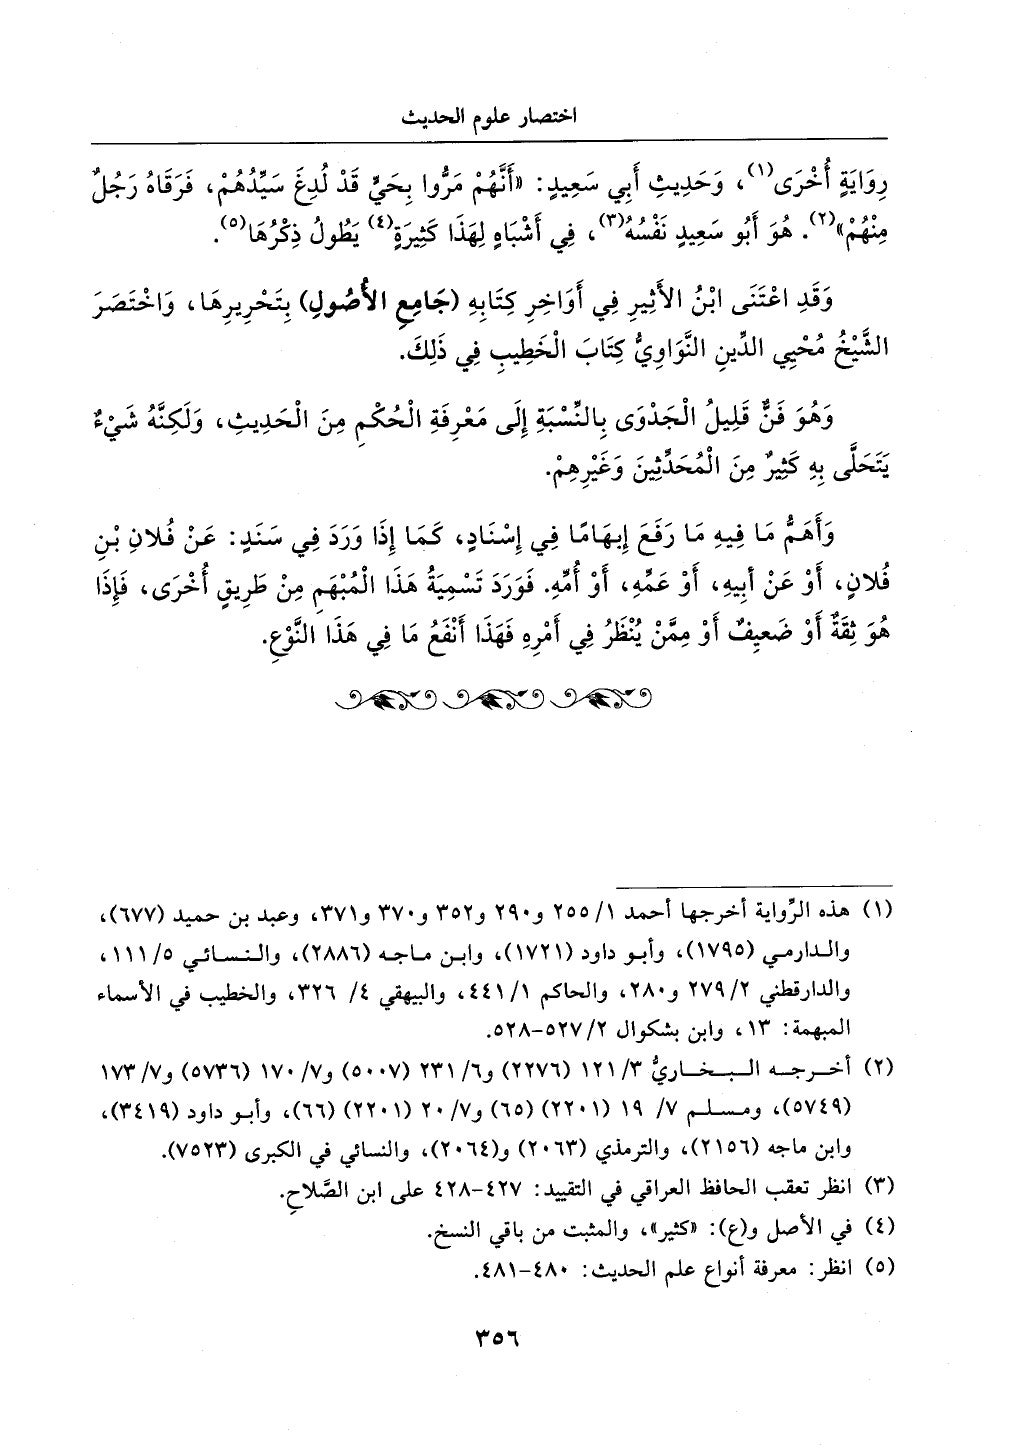 اختصار علوم الحديث
رِوَايَةٍ أُخْرَى(١)، وَحَدِيثِ أَبِي سَعِيدٍ: «أَنَّهُمْ مَرُّوا بِحَيٍّ قَدْ لُدِغَ سَيِّدُهُمْ، فَرَقَاهُ رَجُلٌ
مِنْهُمْ»(٢). هُوَ أَبُو سَعِيدٍ نَفْسُهُ(٣)، فِي أَشْبَاهٍ لِهَذَا كَثِيرَةٍ(٤) يَطُولُ ذِكْرُهَا(٥).
وَقَدِ اعْتَنَى ابْنُ الأَثِيرِ فِي أَوَاخِرِ كِتَابِهِ (جَامِعِ الأُصُولِ) بِتَحْرِيرِهَا، وَاخْتَصَرَ
الشَّيْخُ مُحْيِي الدِّينِ النَّوَاوِيُّ كِتَابَ الْخَطِيبِ فِي ذَلِكَ.
وَهُوَ فَنٌّ قَلِيلُ الْجَدْوَى بِالنِّسْبَةِ إِلَى مَعْرِفَةِ الْحُكْمِ مِنَ الْحَدِيثِ، وَلَكِنَّهُ شَيْءٌ
يَتَحَلَّى بِهِ كَثِيرٌ مِنَ الْمُحَدِّثِينَ وَغَيْرِهِمْ.
وَأَهَمُّ مَا فِيهِ مَا رَفَعَ إِبهَامًا فِي إِسْنَادٍ، كَمَا إِذَا وَرَدَ فِي سَنَدٍ: عَنْ فُلانِ بْنِ
فُلانٍ، أَوْ عَنْ أبِيهِ، أَوْ عَمِّهِ، أَوْ أُمِّهِ. فَوَرَدَ تَسْمِيَةُ هَذَا الْمُبْهَمِ مِنْ طَرِيقٍ أُخْرَى، فَإِذَا
هُوَ ثِقَةٌ أَوْ ضَعِيفٌ أَوْ مِمَّنْ يُنْظَرُ فِي أَمْرِهِ فَهَذَا أَنْفَعُ مَا فِي هَذَا النَّوْعِ.
(١) هذه الرِّواية أخرجها أحمد ١/ ٢٥٥ و٢٩٠ و٣٥٢ و٣٧٠ و٣٧١، وعبد بن حميد (٦٧٧)،
والدارمي (١٧٩٥)، وأبو داود (١٧٢١)، وابن ماجه (٢٨٨٦)، والنسائي ٥/ ١١١،
والدارقطني ٢/ ٢٧٩ و٢٨٠، والحاكم ١/ ٤٤١، والبيهقي ٤/ ٣٢٦، والخطيب في الأسماء
المبهمة: ١٣، وابن بشكوال ٢/ ٥٢٧-٥٢٨.
(٢) أخرجه البخاريُّ ٣/ ١٢١ (٢٢٧٦) و٦/ ٢٣١ (٥٠٠٧) و٧/ ١٧٠ (٥٧٣٦) و٧/ ١٧٣
(٥٧٤٩)، ومسلم ٧/ ١٩ (٢٢٠١) (٦٥) و٧/ ٢٠ (٢٢٠١) (٦٦)، وأبو داود (٣٤١٩)،
وابن ماجه (٢١٥٦)، والترمذي (٢٠٦٣) و(٢٠٦٤)، والنسائي في الكبرى (٧٥٢٣).
(٣) انظر تعقب الحافظ العراقي في التقييد: ٤٢٧-٤٢٨ على ابن الصَّلاحِ.
(٤) في الأصل و(ع): «كثير»، والمثبت من باقي النسخ.
(٥) انظر: معرفة أنواع علم الحديث: ٤٨٠-٤٨١.
٣٥٦